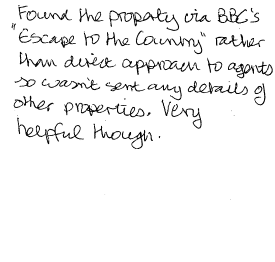 Found the property via BBC's
"Escape to the Country" rather
than direct approach to agents
so wasn't sent any details of
other properties. Very
helpful though.